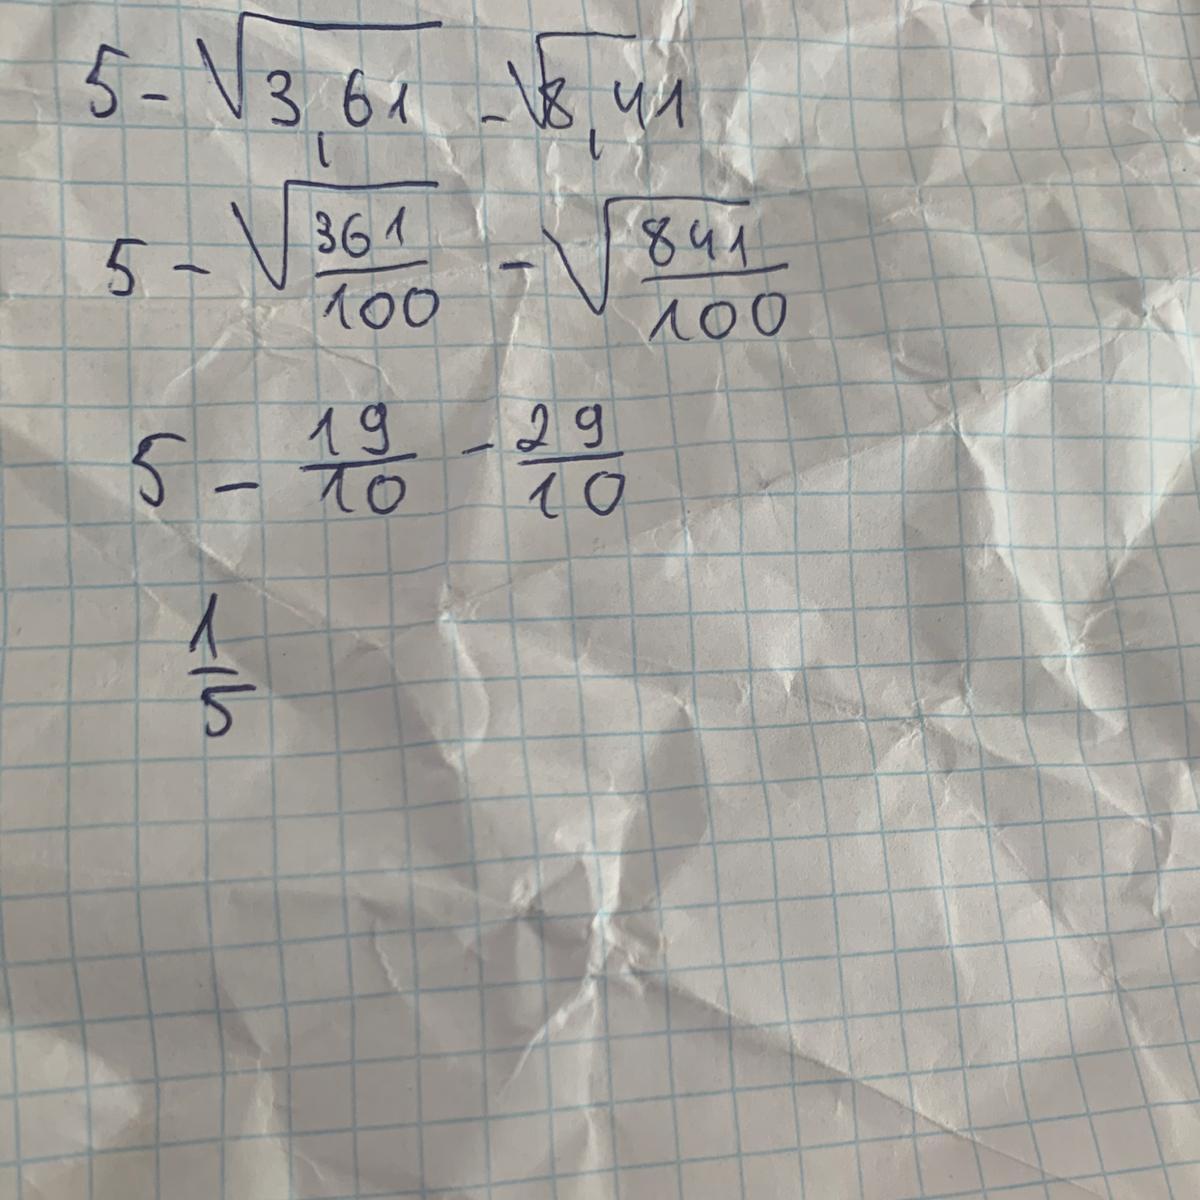 5 - √3,61 - √8,41
5 - √361/100 - √841/100
5 - 19/10 - 29/10
1/5